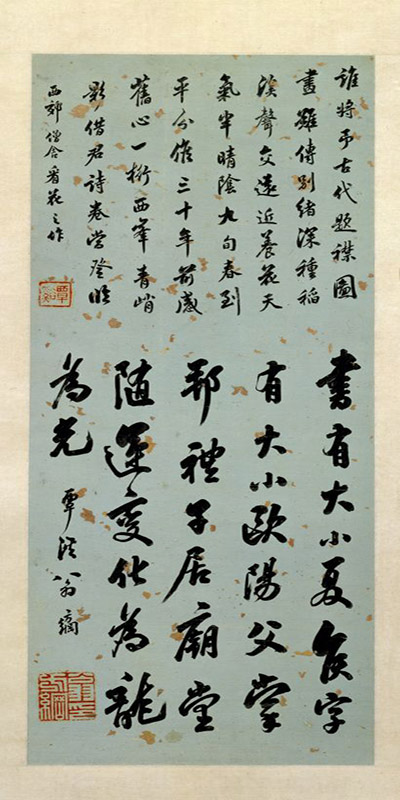 誰將弔古代題襟圖
畫難傳別緒深種稻
溪聲交遠近養花天
氣半晴陰九旬春到
平分候三十年前感
舊心一桁西峯青峭
影借君詩卷當登臨
西郊僧舍看花之作
書有大小夏侯字
有大小歐陽父掌
邪禮子居廟堂
隨運變化為龍
為光
覃溪翁方綱